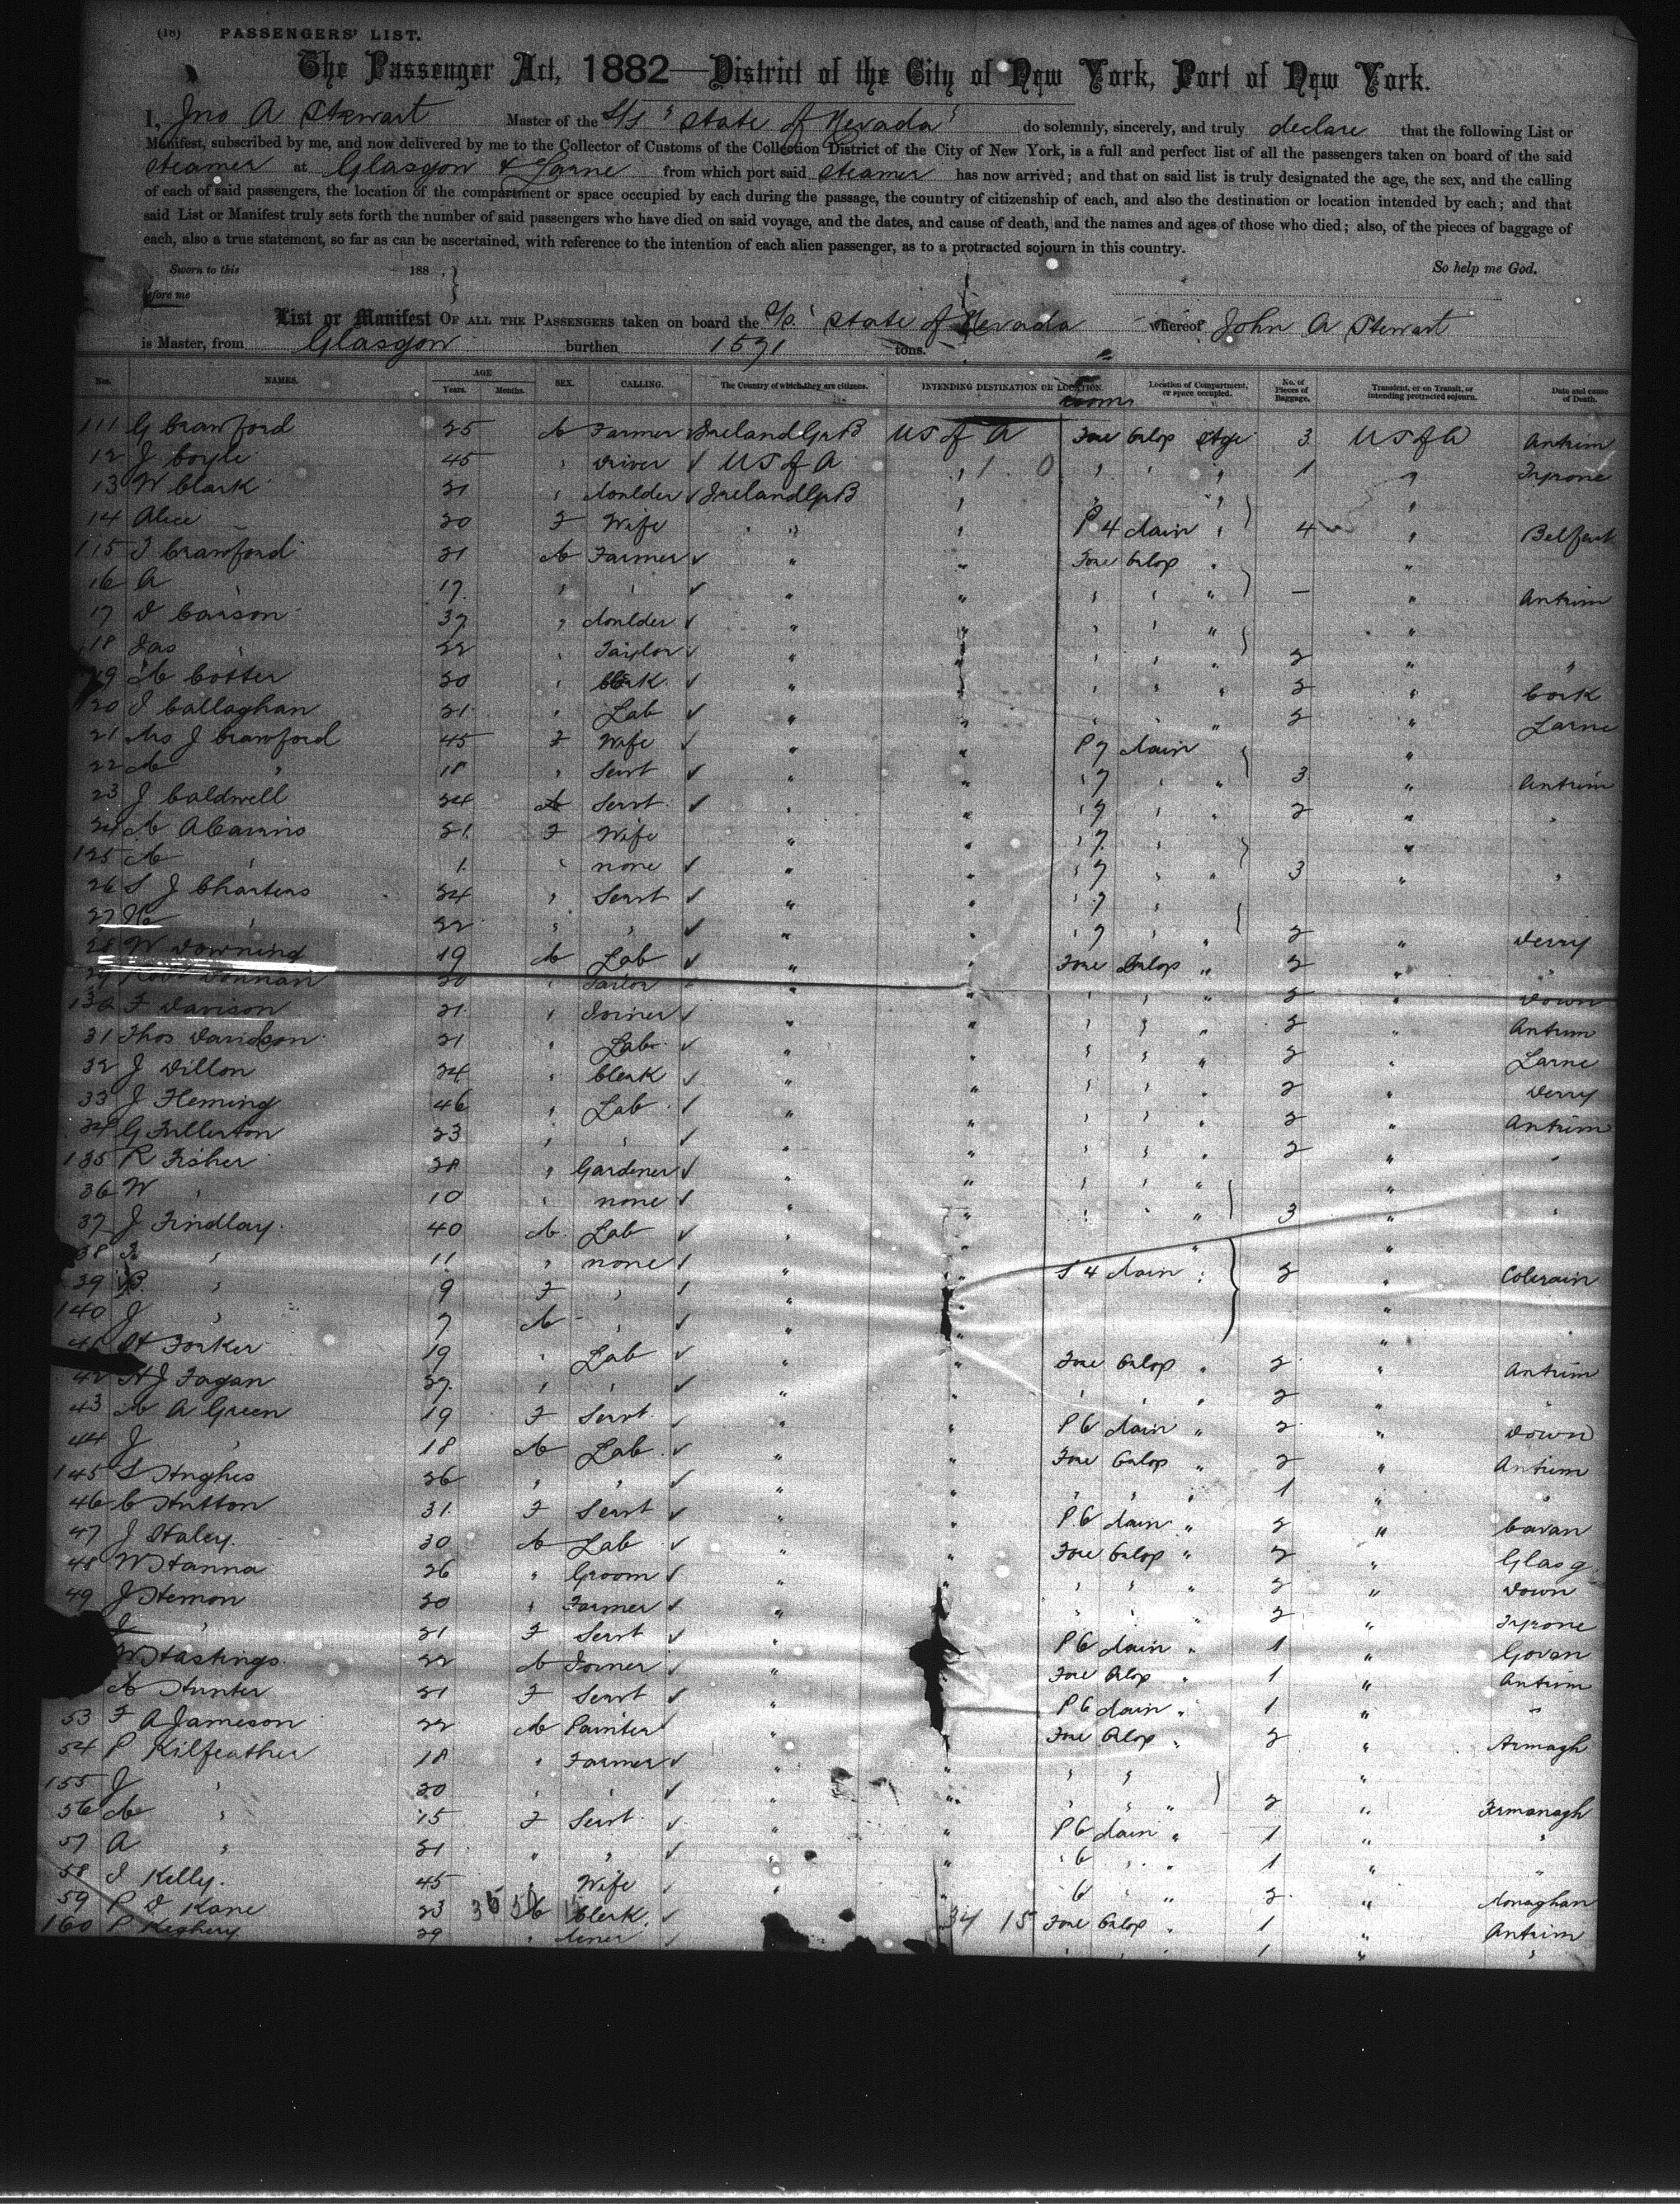 (18) PASSENGERS' LIST.
The Passenger Act, 1882—District of the City of New York, Port of New York.
I, Jno A Stewart Master of the S/S "State of Nevada" do solemnly, sincerely, and truly declare that the following List or
Manifest, subscribed by me, and now delivered by me to the Collector of Customs of the Collection District of the City of New York, is a full and perfect list of all the passengers taken on board of the said
steamer at Glasgow & Larne from which port said steamer has now arrived; and that on said list is truly designated the age, the sex, and the calling
of each of said passengers, the location of the compartment or space occupied by each during the passage, the country of citizenship of each, and also the destination or location intended by each; and that
said List or Manifest truly sets forth the number of said passengers who have died on said voyage, and the dates, and cause of death, and the names and ages of those who died; also, of the pieces of baggage of
each, also a true statement, so far as can be ascertained, with reference to the intention of each alien passenger, as to a protracted sojourn in this country.
Sworn to this 188 , } So help me God.
before me
List or Manifest OF ALL THE PASSENGERS taken on board the S/S State of Nevada whereof John A Stewart
is Master, from Glasgow burthen 1571 tons.
Nos. NAMES. AGE Years. Months. SEX. CALLING. The Country of which they are citizens. INTENDING DESTINATION OR LOCATION. Location of Compartment, or space occupied. No. of Pieces of Baggage. Transient, or on Transit, or intending protracted sojourn. Date and cause of Death.
111 G Crawford 25 M Farmer ✓ Ireland Gr B US of A Fore Orlop Stge 3 US of A Antrim
12 J Coyle 45 " Driver ✓ US of A " " " " 1 " Tyrone
13 W Clark 21 " Moulder ✓ Ireland Gr B " " " "
14 Alice 20 F Wife " " P 4 Main " 4 " Belfast
115 J Crawford 21 M Farmer ✓ " " Fore Orlop " "
16 A 17 " " ✓ " " " " " — " Antrim
17 D Carson 37 " Moulder ✓ " " " " " "
18 Jas " 22 " Taylor ✓ " " " " " 2 " "
19 M Cotter 20 " Clerk ✓ " " " " " 2 " Cork
20 J Callaghan 21 " Lab ✓ " " " " " 2 " Larne
21 Mrs J Crawford 45 F Wife ✓ " " P 7 Main "
22 M " 18 " Servt ✓ " " " 7 " " 3 " Antrim
23 J Caldwell 24 M Servt ✓ " " " 7 " " 2 " "
24 M A Cairns 21 F Wife " " " 7 " "
125 M " 1 " none ✓ " " " 7 " " 3 " "
26 S J Charters 24 " Servt ✓ " " " 7 "
27 " 22 " " ✓ " " " 7 " " 2 " Derry
28 W Downing 19 M Lab ✓ " " Fore Orlop " 2 " "
29 Robt Donnan 20 " Tailor " " " " " " 2 " Down
130 F Davison 21 " Joiner ✓ " " " " " 2 " Antrim
31 Thos Davidson 21 " Lab ✓ " " " " " 2 " Larne
32 J Dillon 24 " Clerk ✓ " " " " " 2 " Derry
33 J Fleming 46 " Lab ✓ " " " " " 2 " Antrim
34 G Fullerton 23 " " ✓ " " " " " 2 " "
135 R Fisher 28 " Gardener ✓ " " " " " "
36 W " 10 " none ✓ " " " " " 3 " "
37 J Findlay 40 M Lab ✓ " " " "
38 " 11 " none ✓ " " S 4 Main " 2 " Colerain
39 B " 9 F " ✓ " " "
140 J " 7 M " ✓ " " "
41 H Forker 19 " Lab ✓ " " Fore Orlop " 2 " Antrim
42 H J Fagan 27 " " ✓ " " " " 2 " "
43 M A Green 19 F Servt ✓ " " P 6 Main " 2 " Down
44 J " 18 M Lab ✓ " " Fore Orlop " 2 " Antrim
145 S Hughes 26 " " ✓ " " " " " 1 " "
46 C Hutton 31 F Servt ✓ " " P 6 Main " 2 " Cavan
47 J Haley 30 M Lab ✓ " " Fore Orlop " 2 " Glasg
48 W Hanna 26 " Groom ✓ " " " " " 2 " Down
49 J Hemon 20 " Farmer ✓ " " " " " 2 " Tyrone
" 21 F Servt ✓ " " P 6 Main " 1 " Govan
W Hastings 22 M Joiner ✓ " " Fore Orlop " 1 " Antrim
M Hunter 21 F Servt ✓ " " P 6 Main " 1 " "
53 F A Jameson 22 M Painter ✓ " " Fore Orlop " 2 " Armagh
54 P Kilfeather 18 " Farmer ✓ " " " " "
155 J " 20 " " ✓ " " " " " 2 " Fermanagh
56 M " 15 F Servt ✓ " " P 6 Main " 1 " "
57 A " 21 " " ✓ " " " 6 " " 1 " "
58 J Kelly 45 " Wife ✓ " " 6 " " 2 " Monaghan
59 P D Kane 23 M Clerk ✓ " 34 15 Fore Orlop " 1 " Antrim
160 P Keghery 29 " Miner ✓ " " " 1 " "